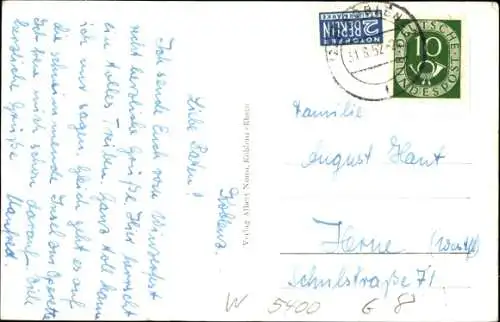 Koblenz.
Liebe Paten!
Ich sende Euch vom Winzerfest
recht herzliche Grüße. Hier herrscht
ein tolles Treiben. Ganz toll kann
ich nur sagen. Gleich geht es auf
die schwimmende Insel zur Operette.
Ich freue mich schon darauf. Viele
herzliche Grüße
Manfred.
Verlag Albert Nunn, Koblenz-Rhein
NOTOPFER
2 BERLIN
STEUERMARKE
31.8.52
DEUTSCHE
BUNDESPOST
10
Familie
August Haut
Herne (Westf)
Schulstraße 71
W 5400 G 8